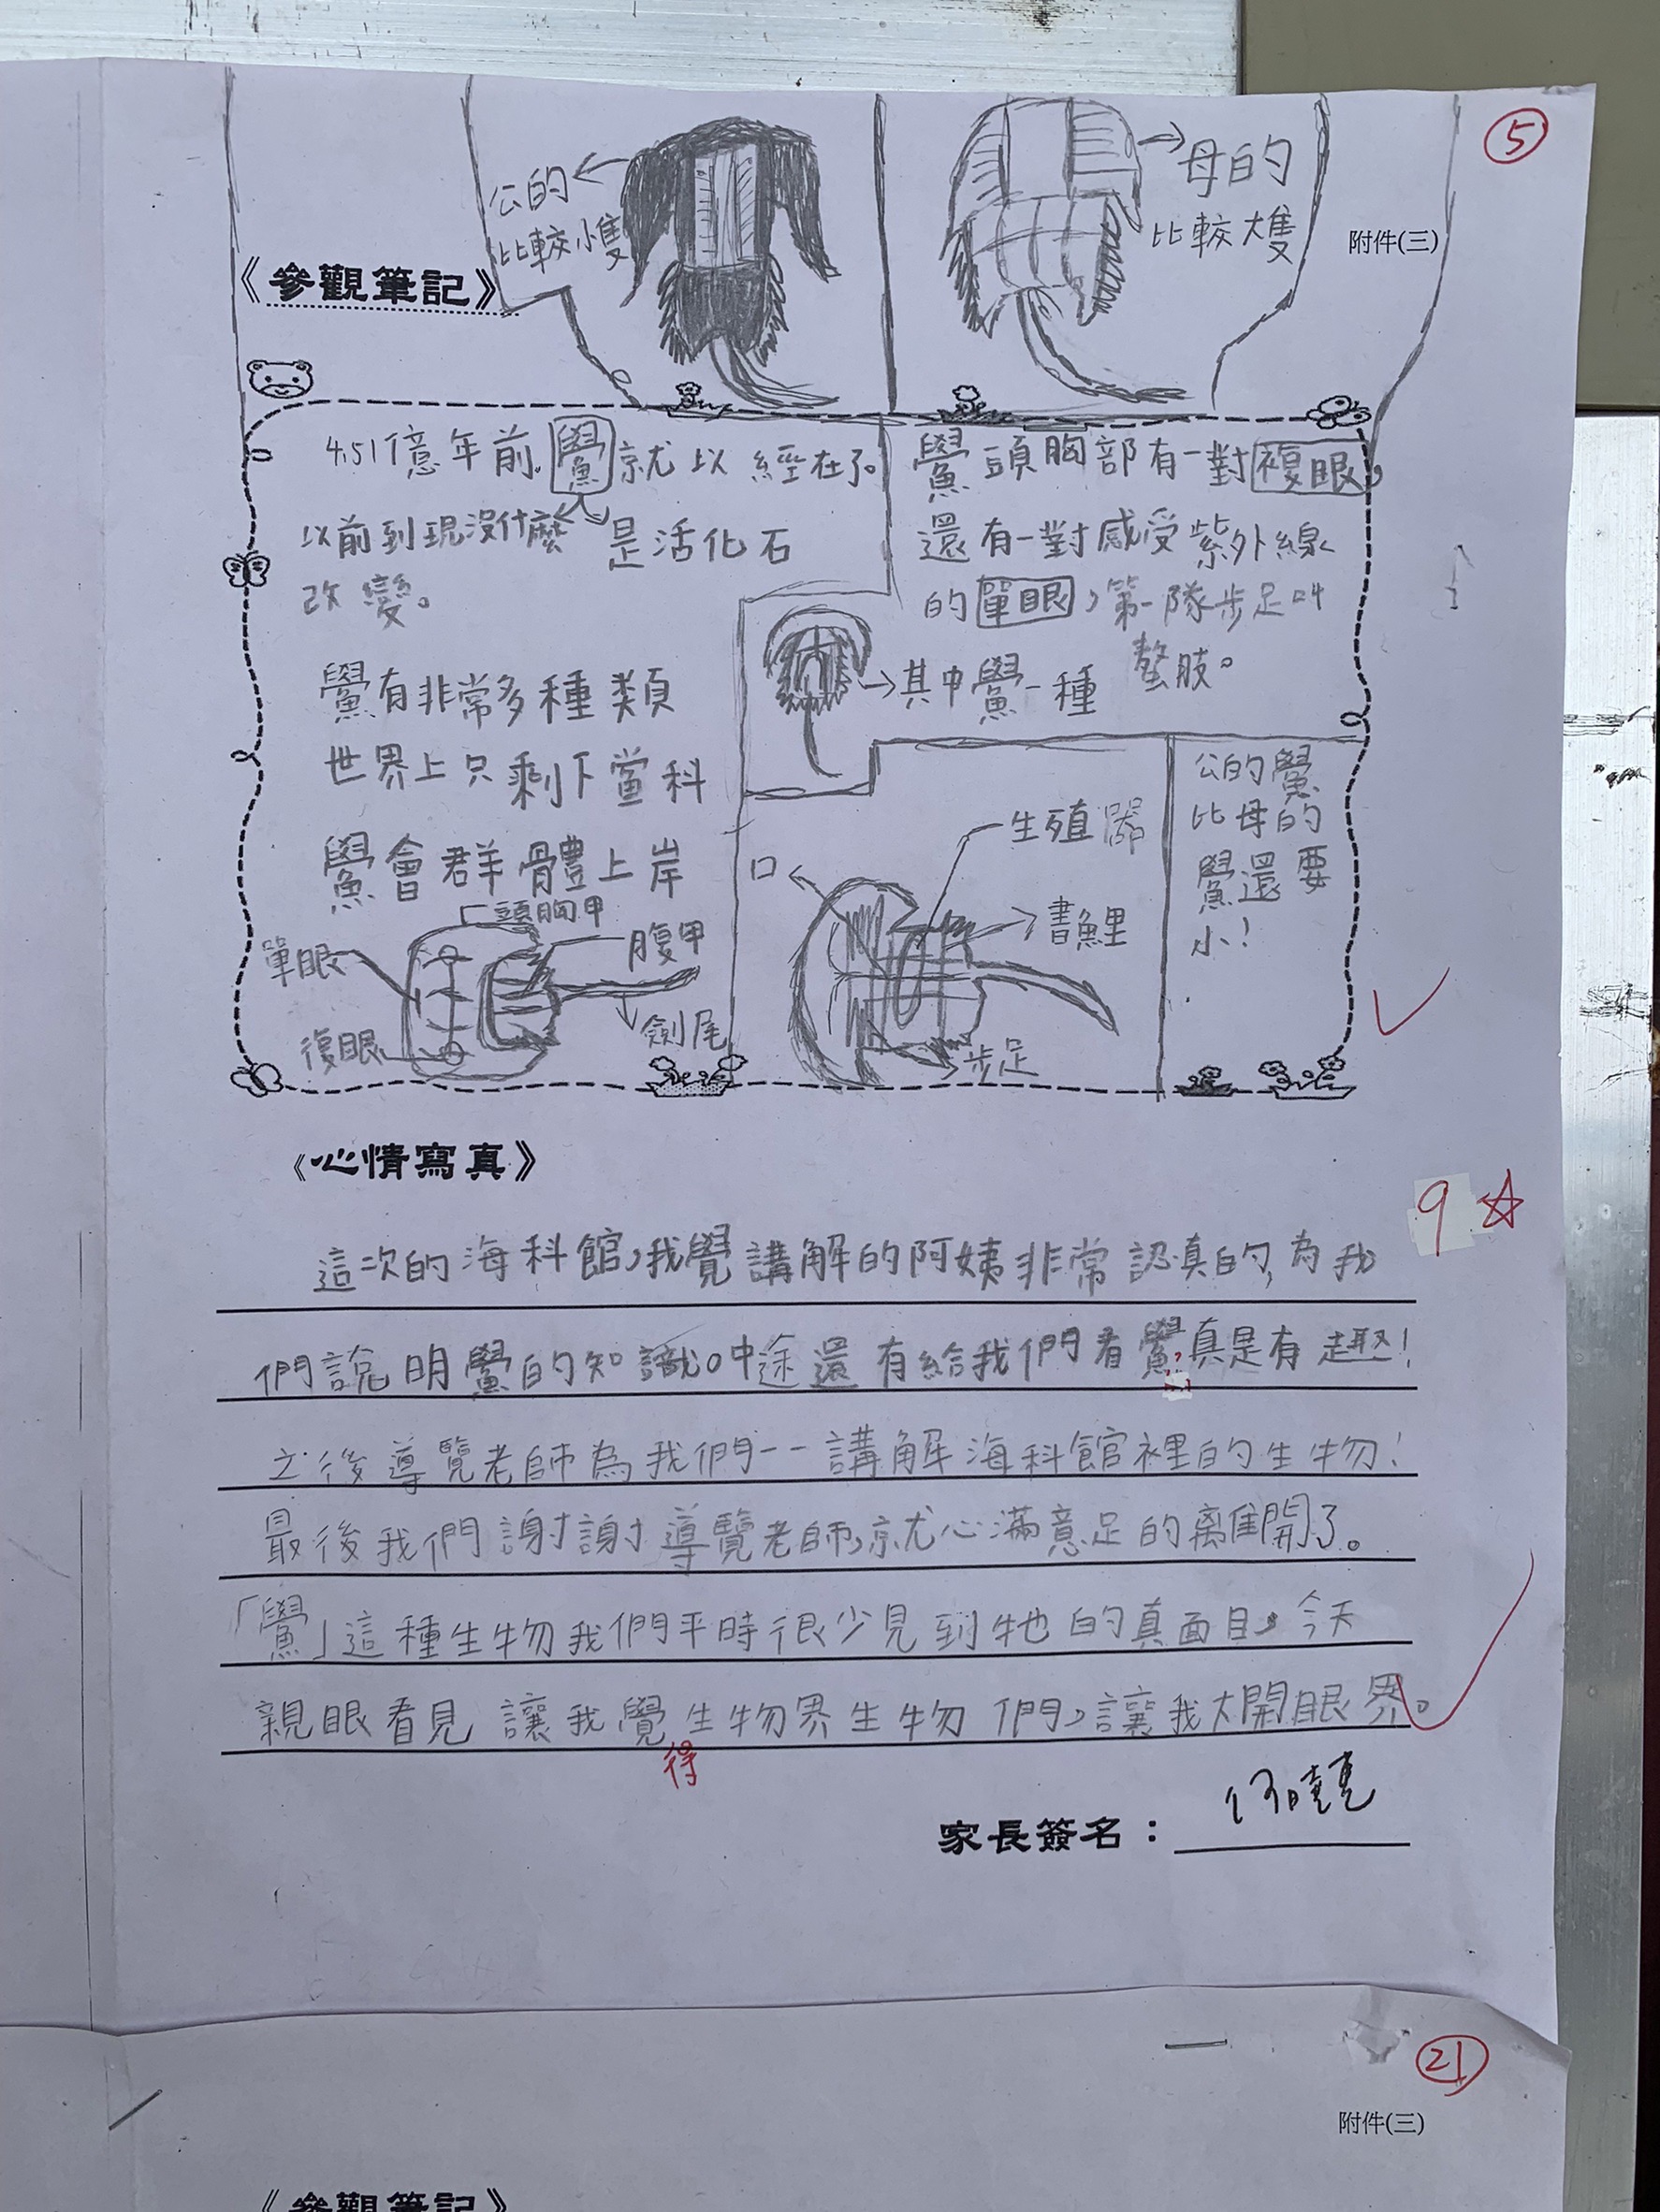 ⑤
公的
比較小隻
母的
比較大隻
附件(三)
《參觀筆記》
4.51億年前,鱟就以經在了。
以前到現沒什麼
改變。
是活化石
鱟頭胸部有一對複眼,
還有一對感受紫外線
的單眼,第一隊步足叫
螯肢。
鱟有非常多種類
世界上只剩下鱟科
鱟會群體上岸
其中鱟一種
頭胸甲
單眼
腹甲
復眼
劍尾
口
生殖
步足
公的鱟
比母的
鱟還要
小!
《心情寫真》
9☆
這次的海科館,我覺講解的阿姨非常認真的,為我
們說明鱟的知識。中途還有給我們看鱟,真是有趣!
之後導覽老師為我們一一講解海科館裡的生物!
最後我們謝謝導覽老師,就心滿意足的離開了。
「鱟」這種生物我們平時很少見到牠的真面目,今天
親眼看見讓我覺生物界生物們,讓我大開眼界。
得
家長簽名:
㉑
附件(三)
《參觀筆記》